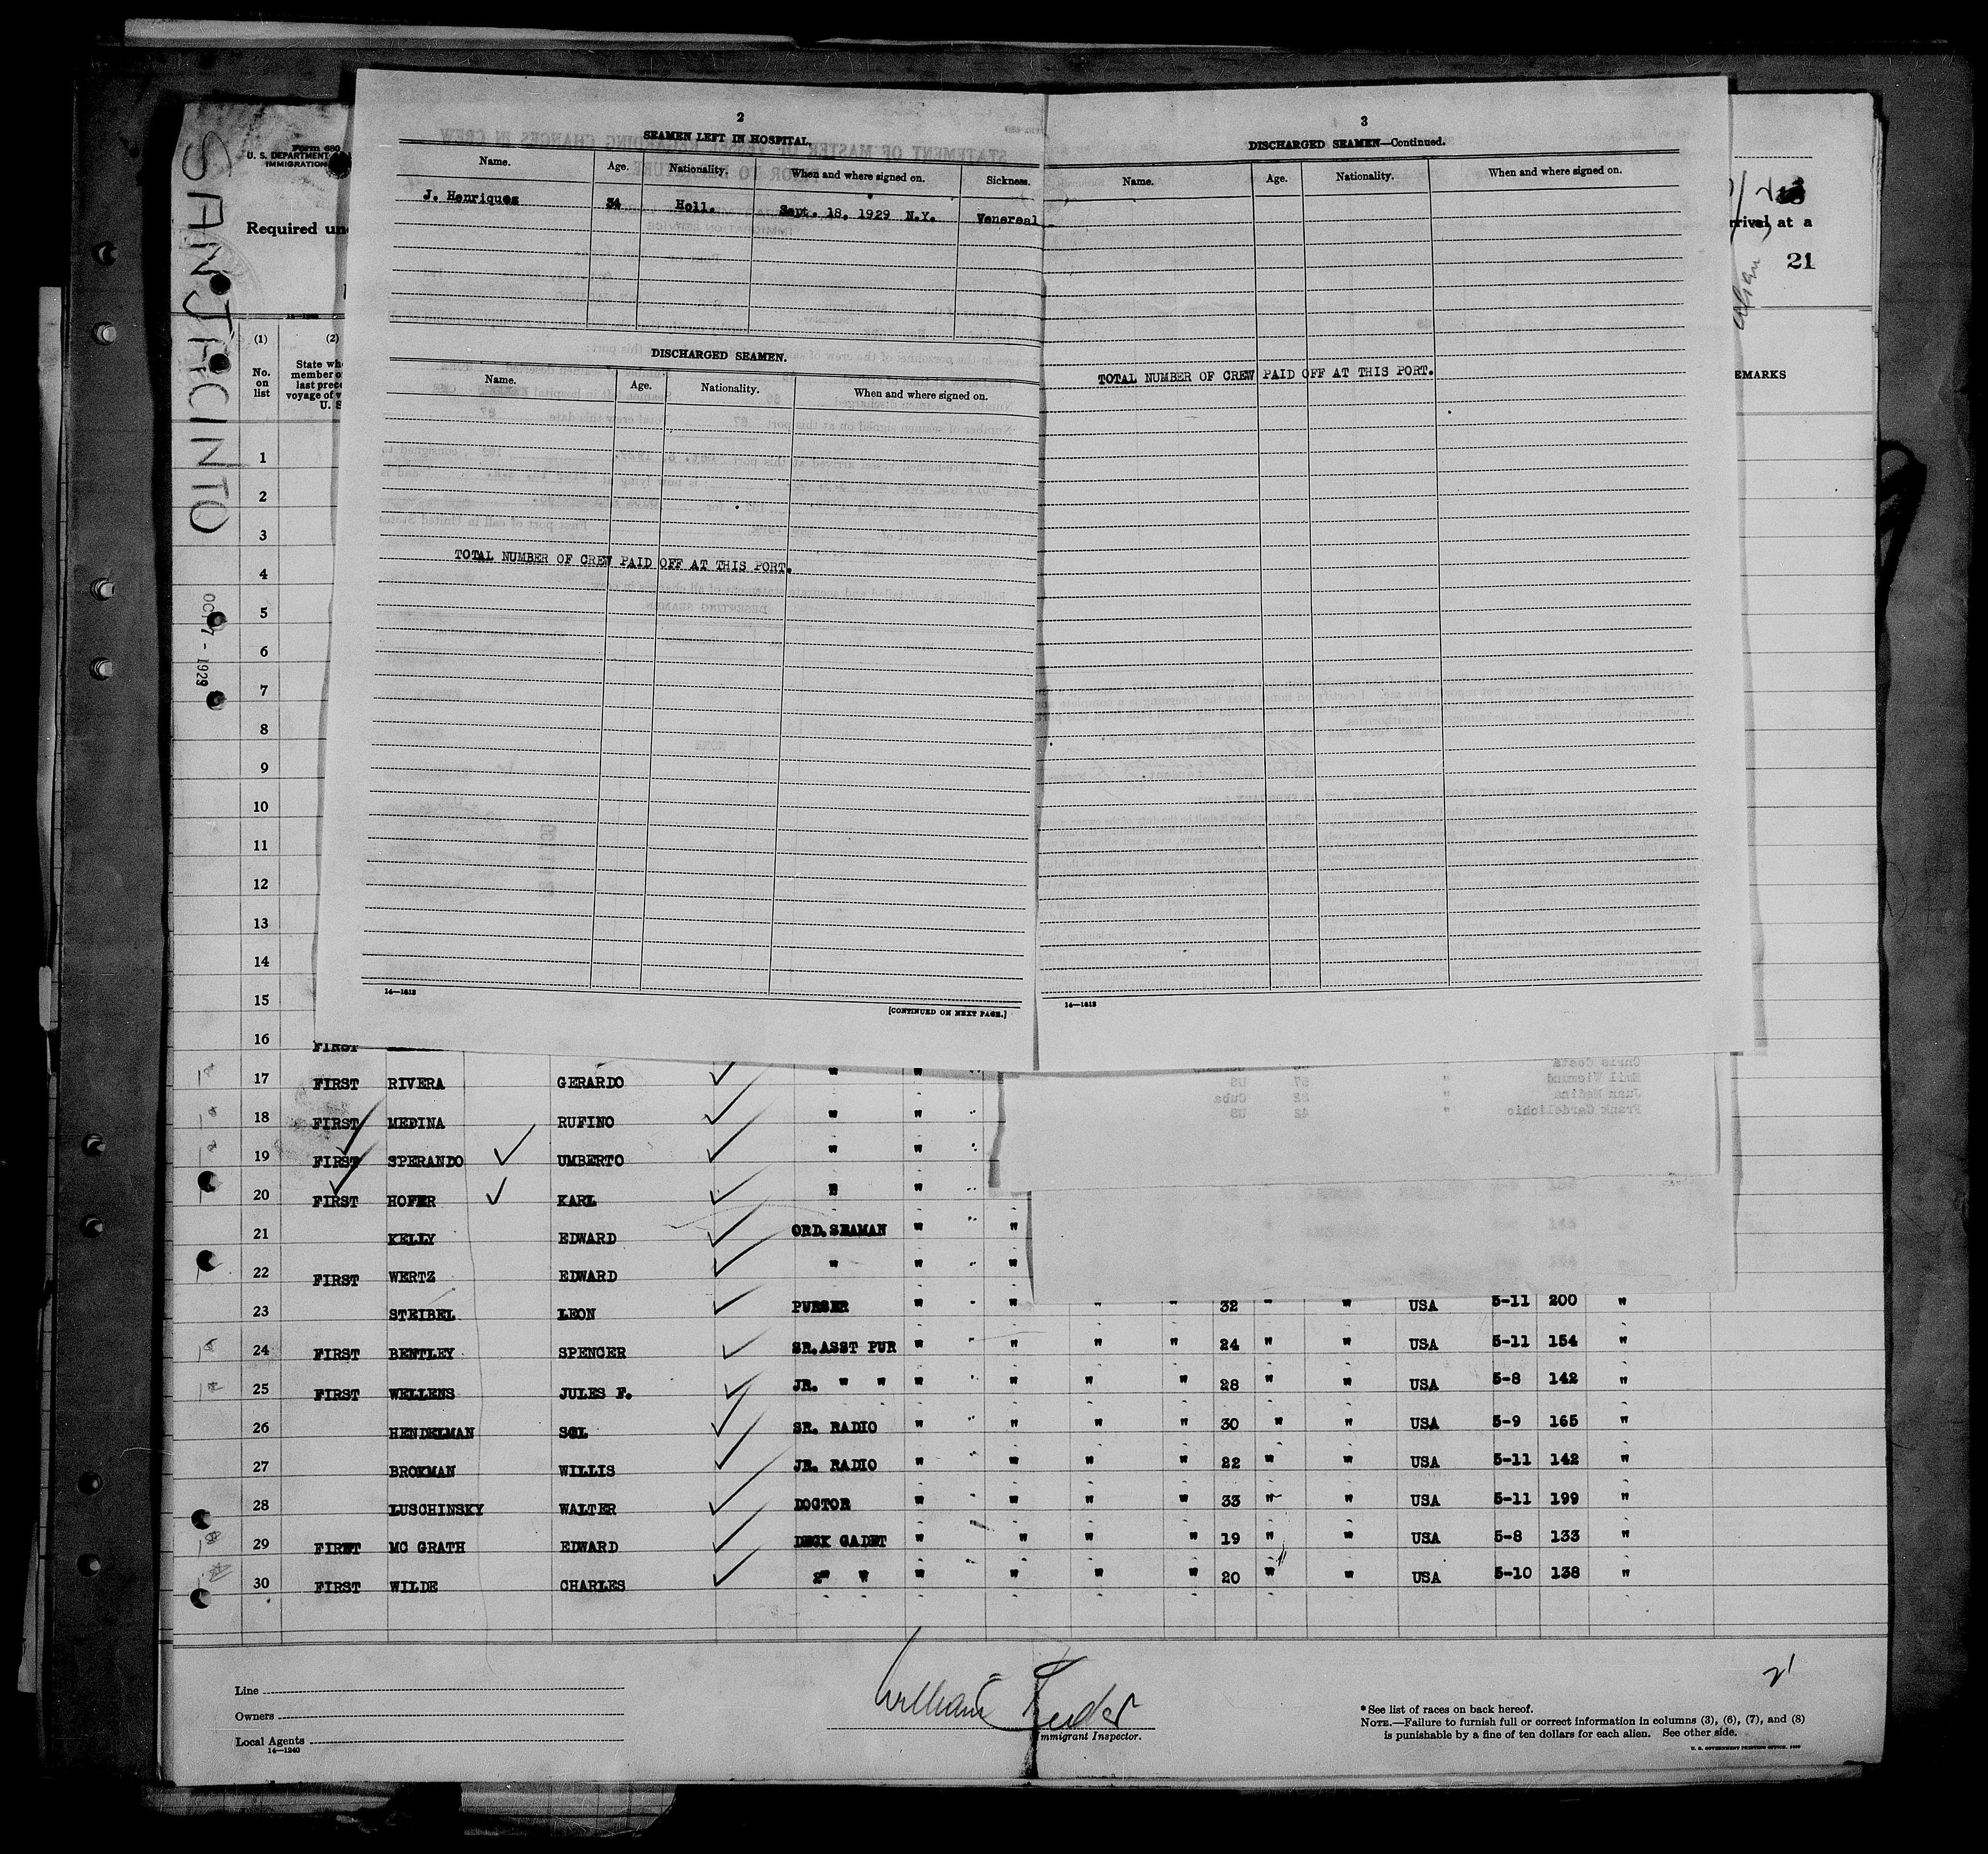 SAN JACINTO
OCT 7 - 1929
Form 680
U. S. DEPARTMENT
IMMIGRATION
Required un
rrival at a
21
(1) (2)
No. on list
State wh
member o
last prece
voyage of v
U. S
EMARKS
2
SEAMEN LEFT IN HOSPITAL.
Name. Age. Nationality. When and where signed on. Sickness.
J. Henriques 34 Holl. Sept. 18, 1929 N.Y. Venereal
DISCHARGED SEAMEN.
Name. Age. Nationality. When and where signed on.
TOTAL NUMBER OF CREW PAID OFF AT THIS PORT.
14—1613
[CONTINUED ON NEXT PAGE.]
3
DISCHARGED SEAMEN—Continued.
Name. Age. Nationality. When and where signed on.
TOTAL NUMBER OF CREW PAID OFF AT THIS PORT.
14—1613
1
2
3
4
5
6
7
8
9
10
11
12
13
14
15
16 FIRST
17 FIRST RIVERA GERARDO " "
18 FIRST MEDINA RUFINO " "
19 FIRST SPERANDO UMBERTO " "
20 FIRST HOFER KARL " "
21 KELLY EDWARD ORD. SEAMAN " " "
22 FIRST WERTZ EDWARD " " " "
23 STEIBEL LEON PURSER " " " " " 32 " " USA 5-11 200 "
24 FIRST BENTLEY SPENCER SR. ASST PUR " " " " " 24 " " USA 5-11 154 "
25 FIRST WELLENS JULES F. JR. " " " " " " " 28 " " USA 5-8 142 "
26 HENDELMAN SOL SR. RADIO " " " " " 30 " " USA 5-9 165 "
27 BROKMAN WILLIS JR. RADIO " " " " " 22 " " USA 5-11 142 "
28 LUSCHINSKY WALTER DOCTOR " " " " " 33 " " USA 5-11 199 "
29 FIRST MC GRATH EDWARD DECK CADET " " " " " 19 " " USA 5-8 133 "
30 FIRST WILDE CHARLES 2" " " " " " " 20 " " USA 5-10 138 "
Line
Owners
Local Agents
14—1240
William
Immigrant Inspector.
21
* See list of races on back hereof.
NOTE.—Failure to furnish full or correct information in columns (3), (6), (7), and (8)
is punishable by a fine of ten dollars for each alien. See other side.
U. S. GOVERNMENT PRINTING OFFICE.